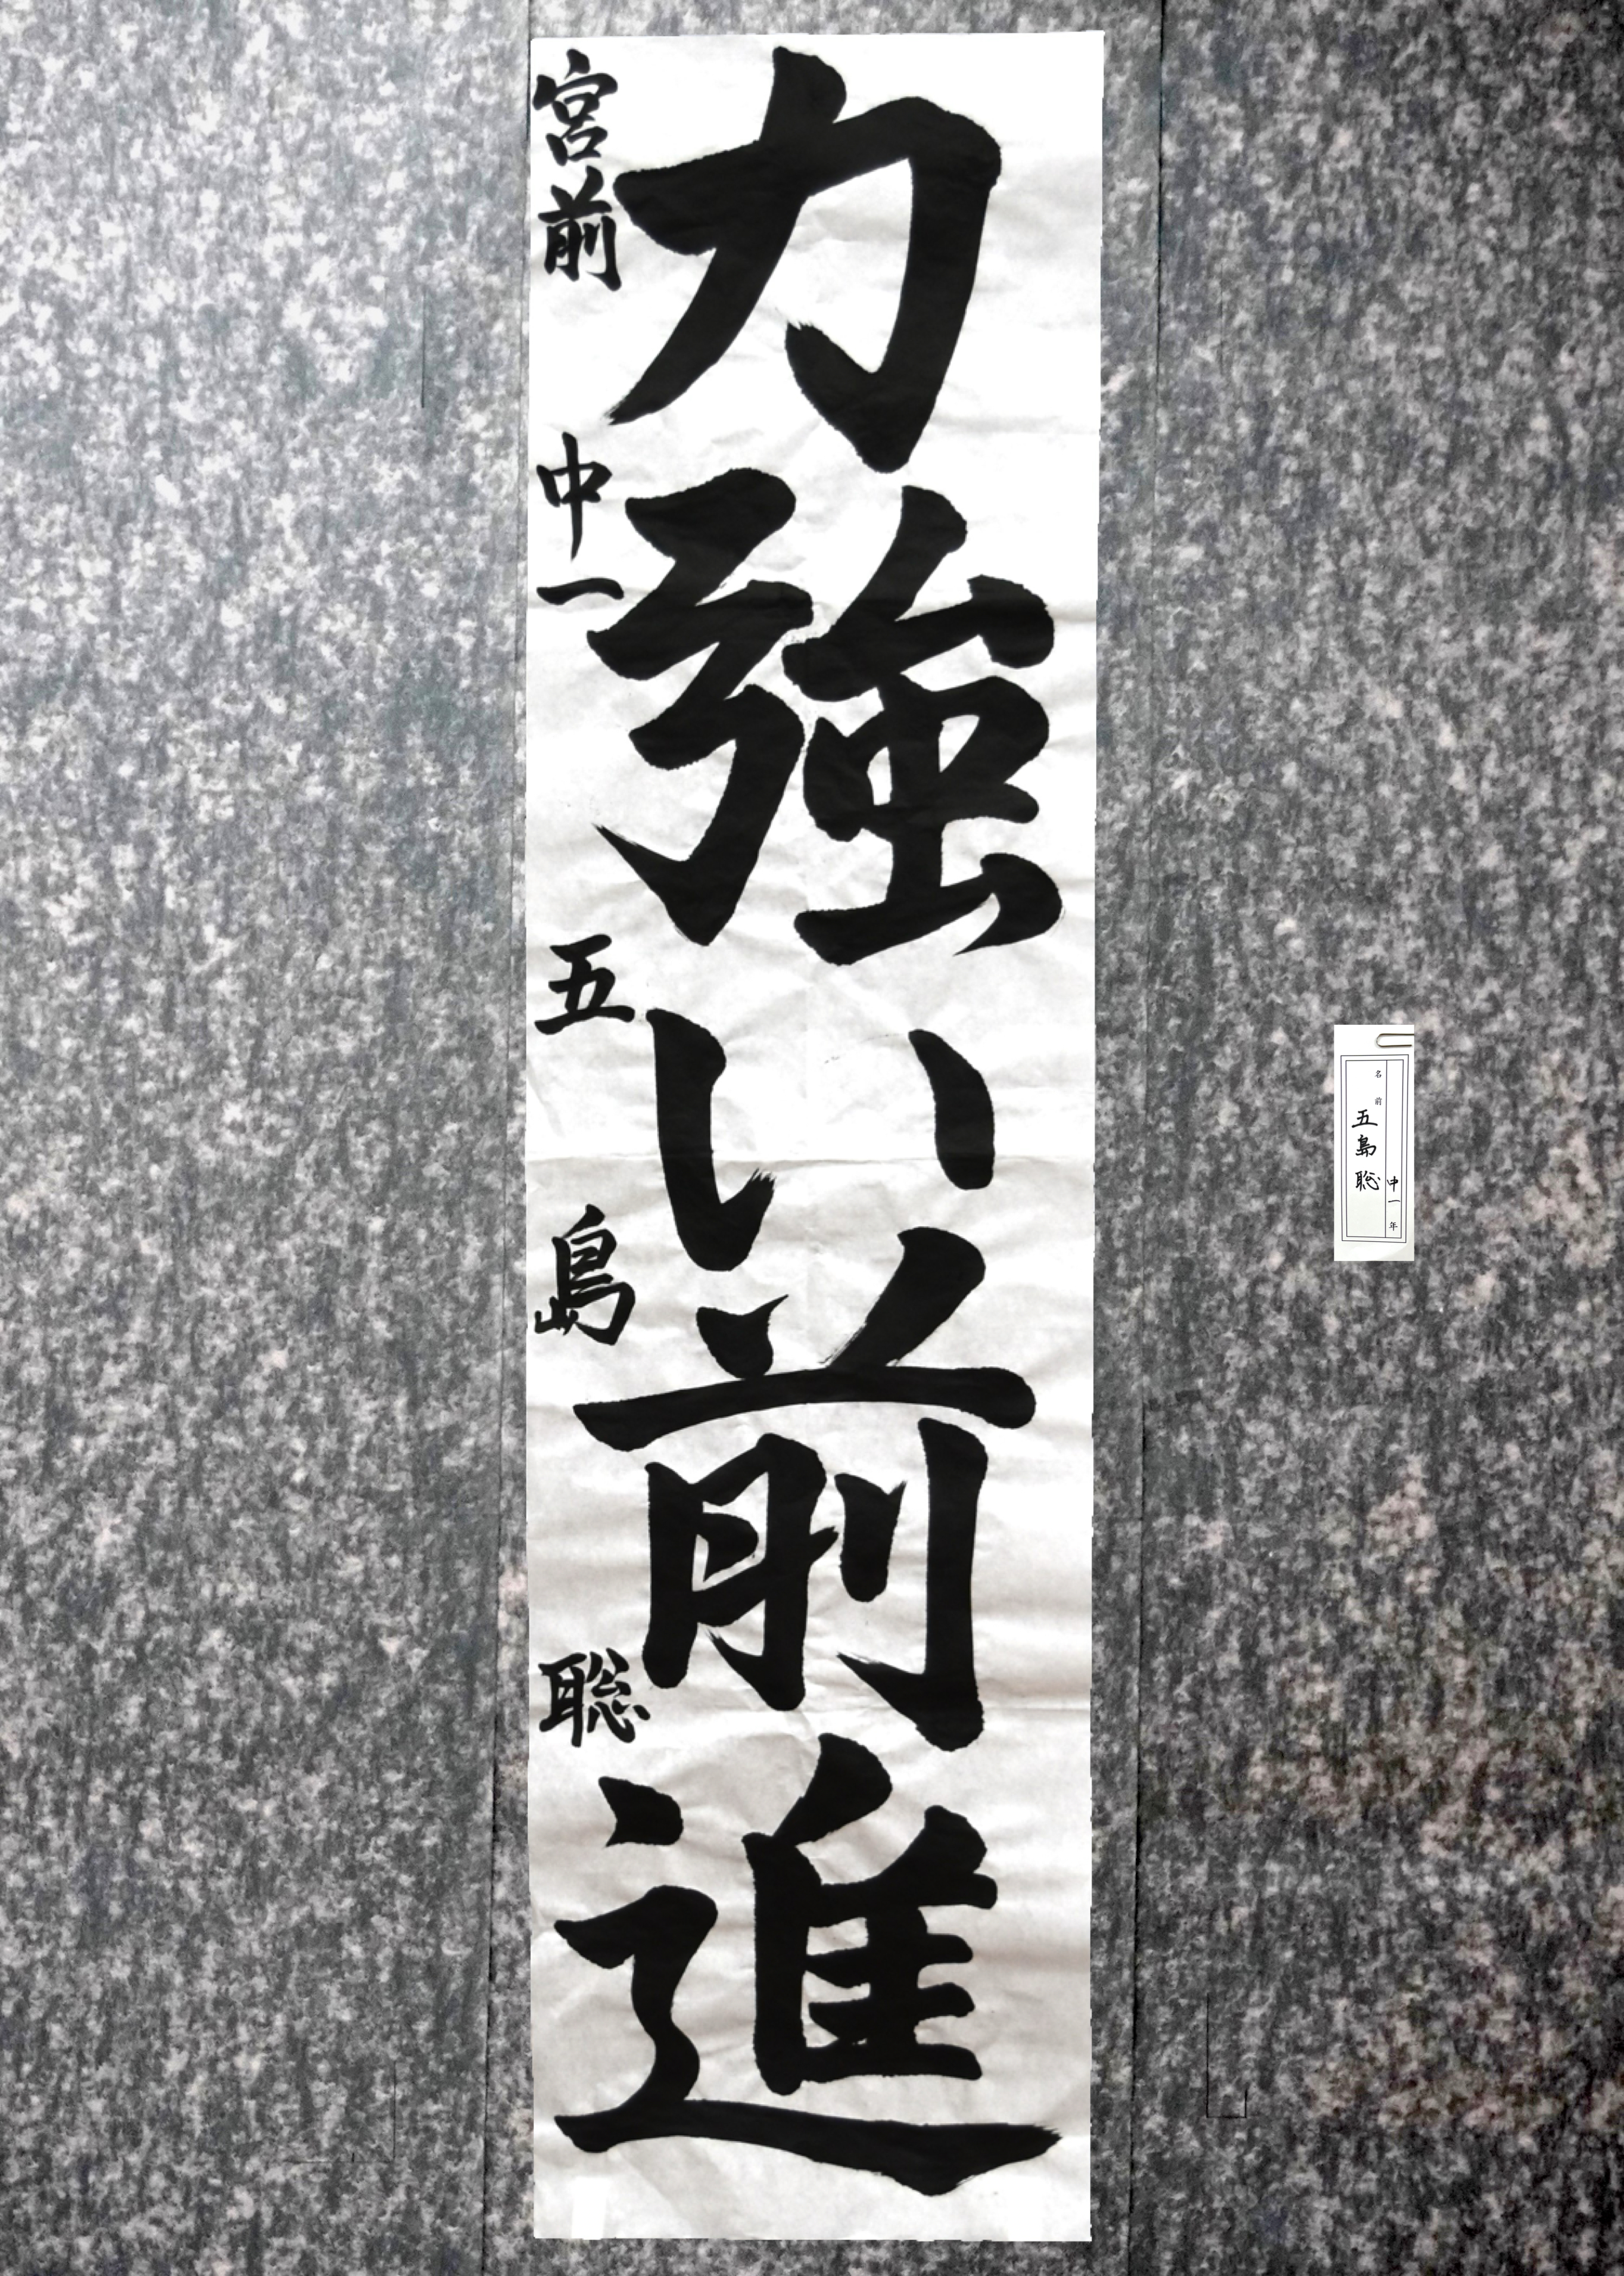 力強い前進
宮前 中一 五島 聡
中一年
名前 五島聡